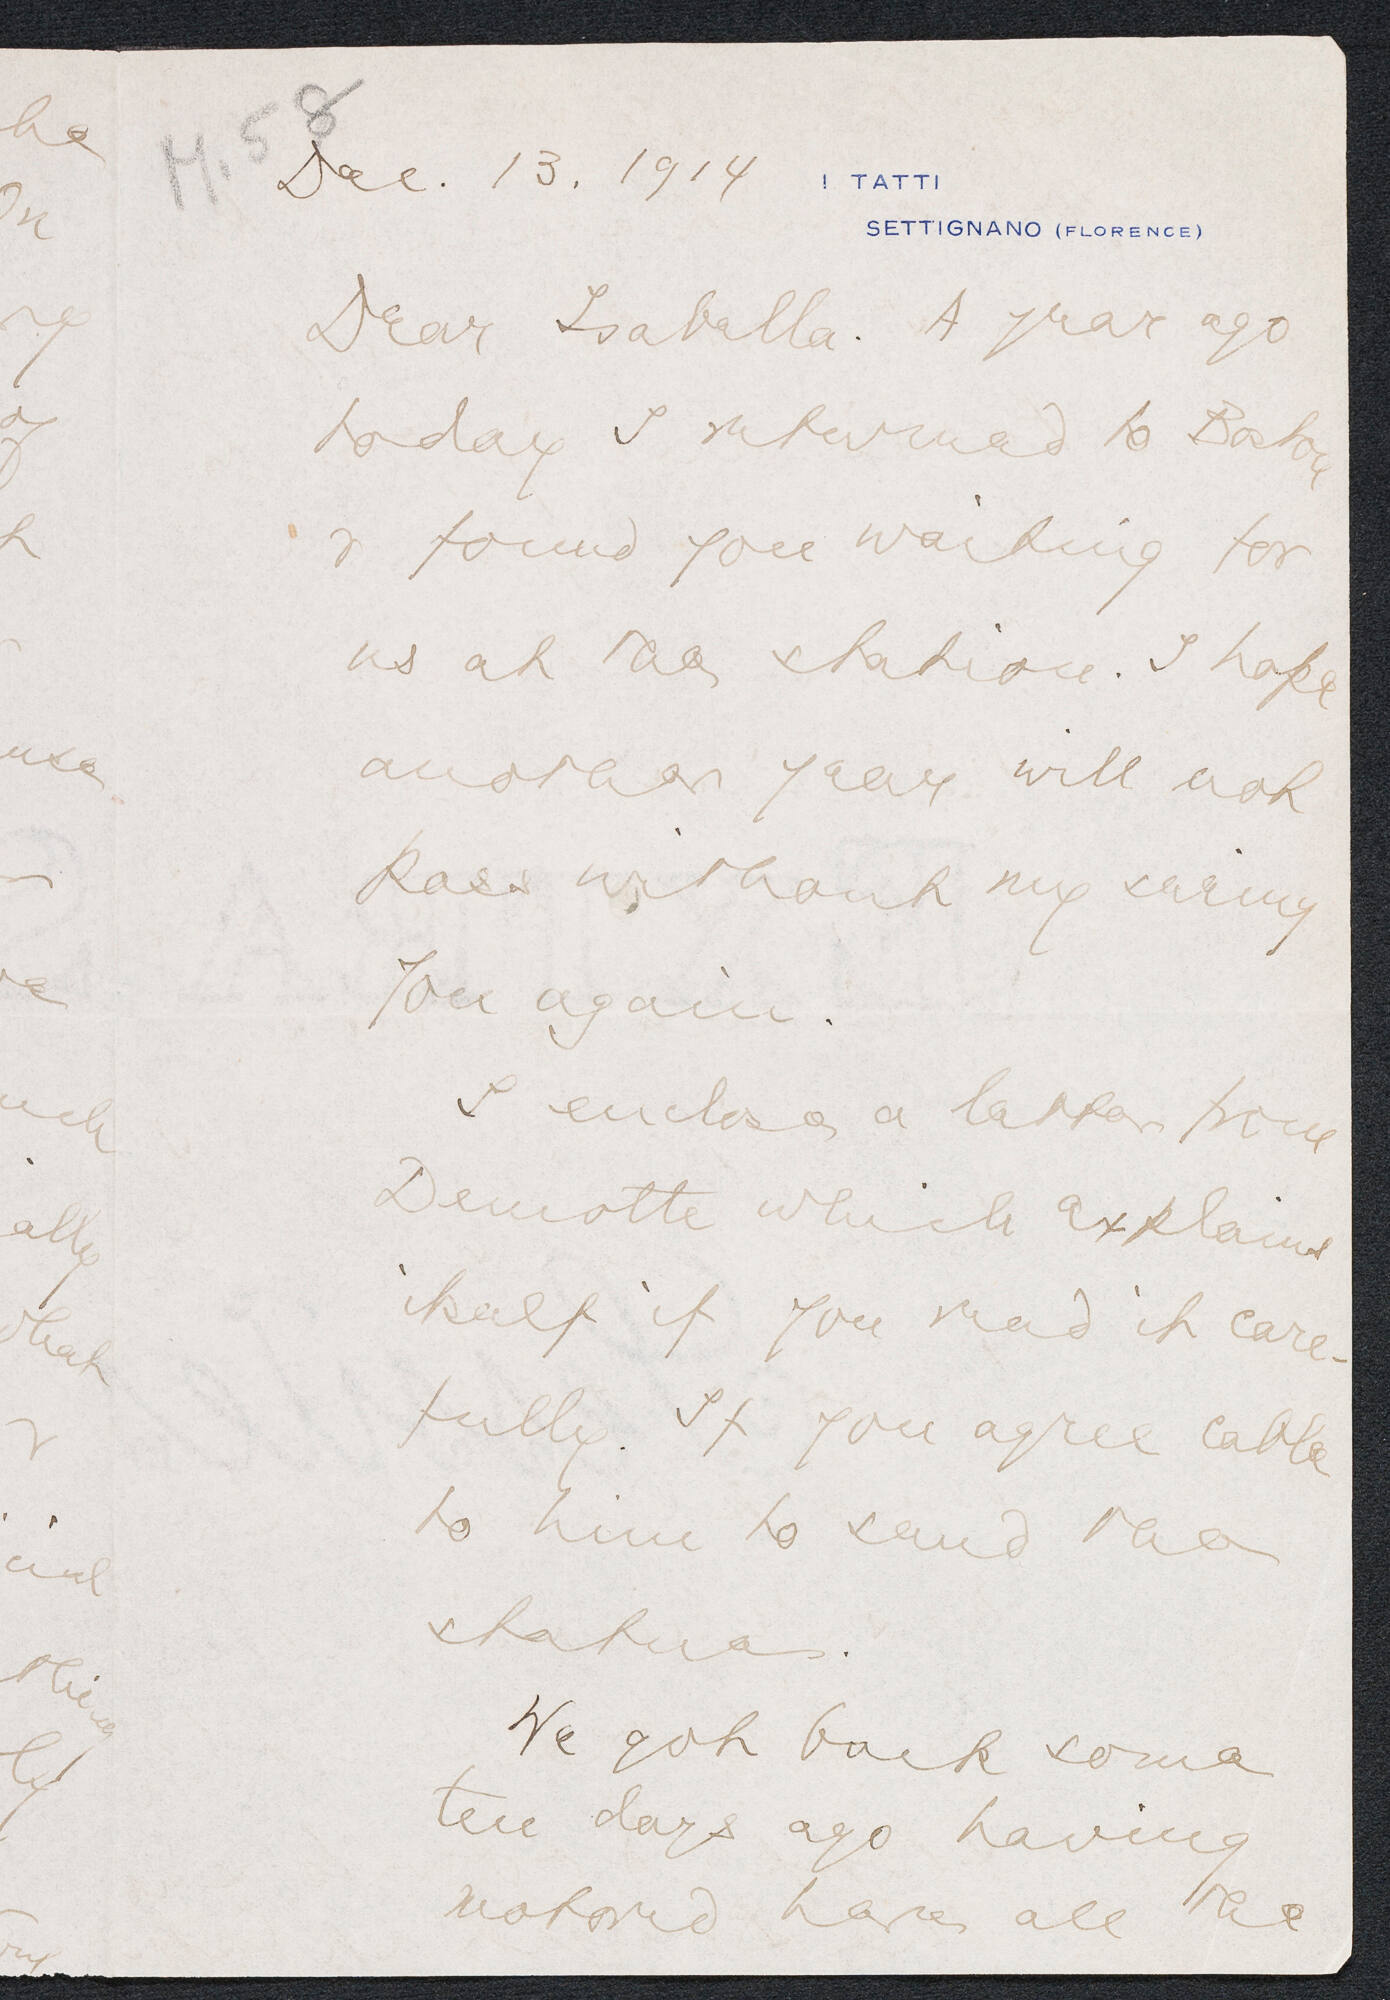 M.58
Dec. 13. 1914
I TATTI
SETTIGNANO (FLORENCE)
Dear Isabella. A year ago
today I returned to Boston
& found you waiting for
us at the station. I hope
another year will not
pass without my seeing
you again.
I enclose a letter from
Demotte which explains
itself if you read it care-
fully. If you agree cable
to him to send the
statue.
We got back some
ten days ago having
motored here all the